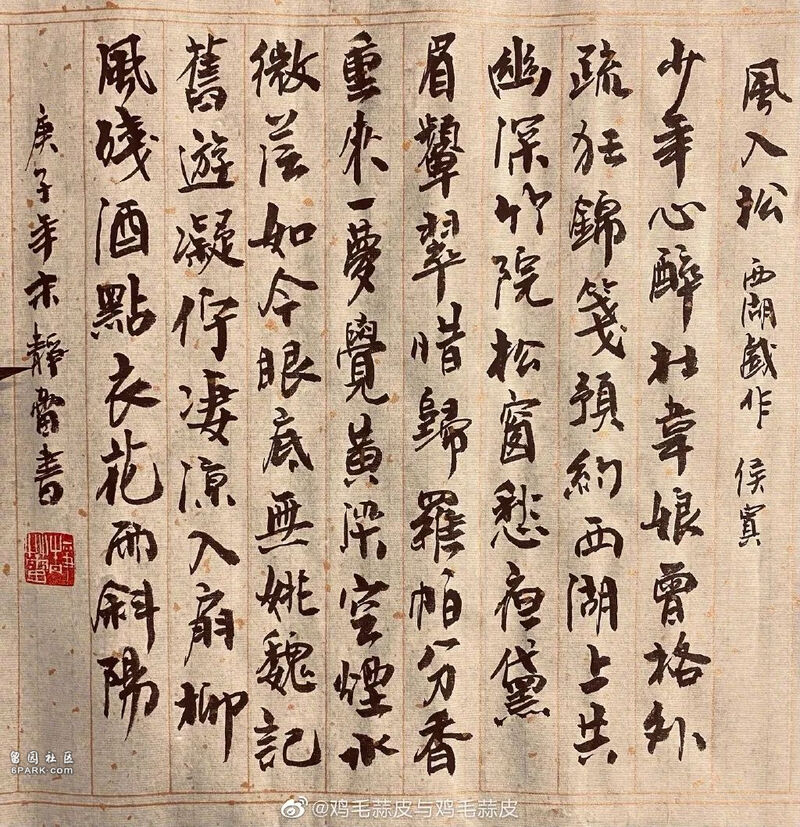 風入松 西湖戲作 侯寘
少年心醉杜韋娘曾格外
疏狂錦箋預約西湖上共
幽深竹院松窗愁夜黛
眉顰翠惜歸羅帕分香
重來一夢覺黃梁空煙水
微茫如今眼底無姚魏記
舊遊凝佇凄涼入扇柳
風殘酒點衣花雨斜陽
庚子年末靜雷書
留园社区
6PARK.COM
@鸡毛蒜皮与鸡毛蒜皮